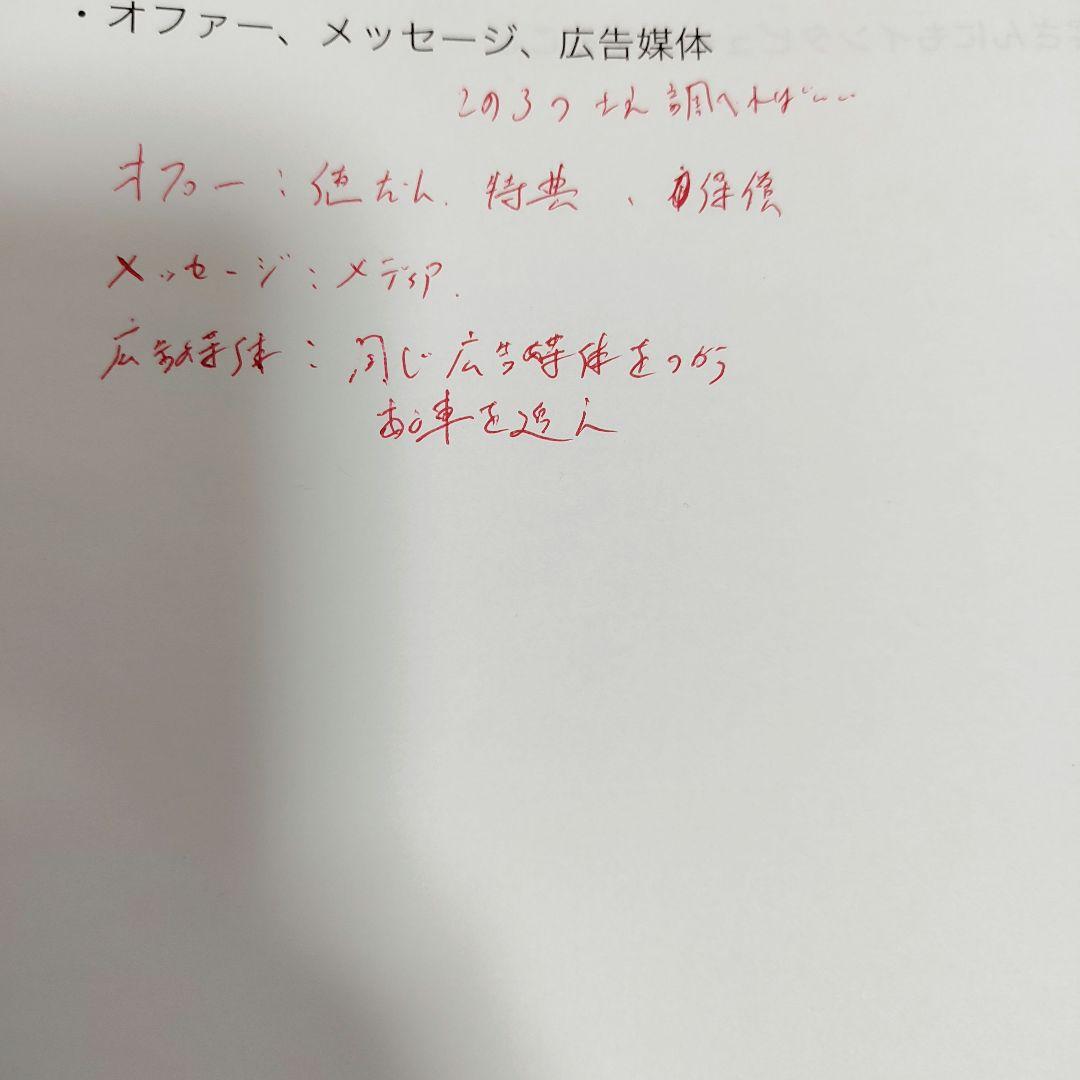 ・オファー、メッセージ、広告媒体
この3つさえ調べれば……
オファー：値だん、特典、保償
メッセージ：メディア.
広告媒体：同じ広告媒体をつか
を